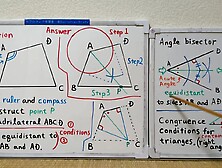 ion
Answer
Step 1
Step 2
Step 3
A
D
B
C
A
D
B
P
C
ruler and compass
nstruct point P
adrilateral ABCD
equidistant to
conditions
AB and AD.
①
②
A
D
B
C
Angle bisector
Acute
Angle
equidistant
to sides
and A
Congruence
Conditions
for triangles, (right